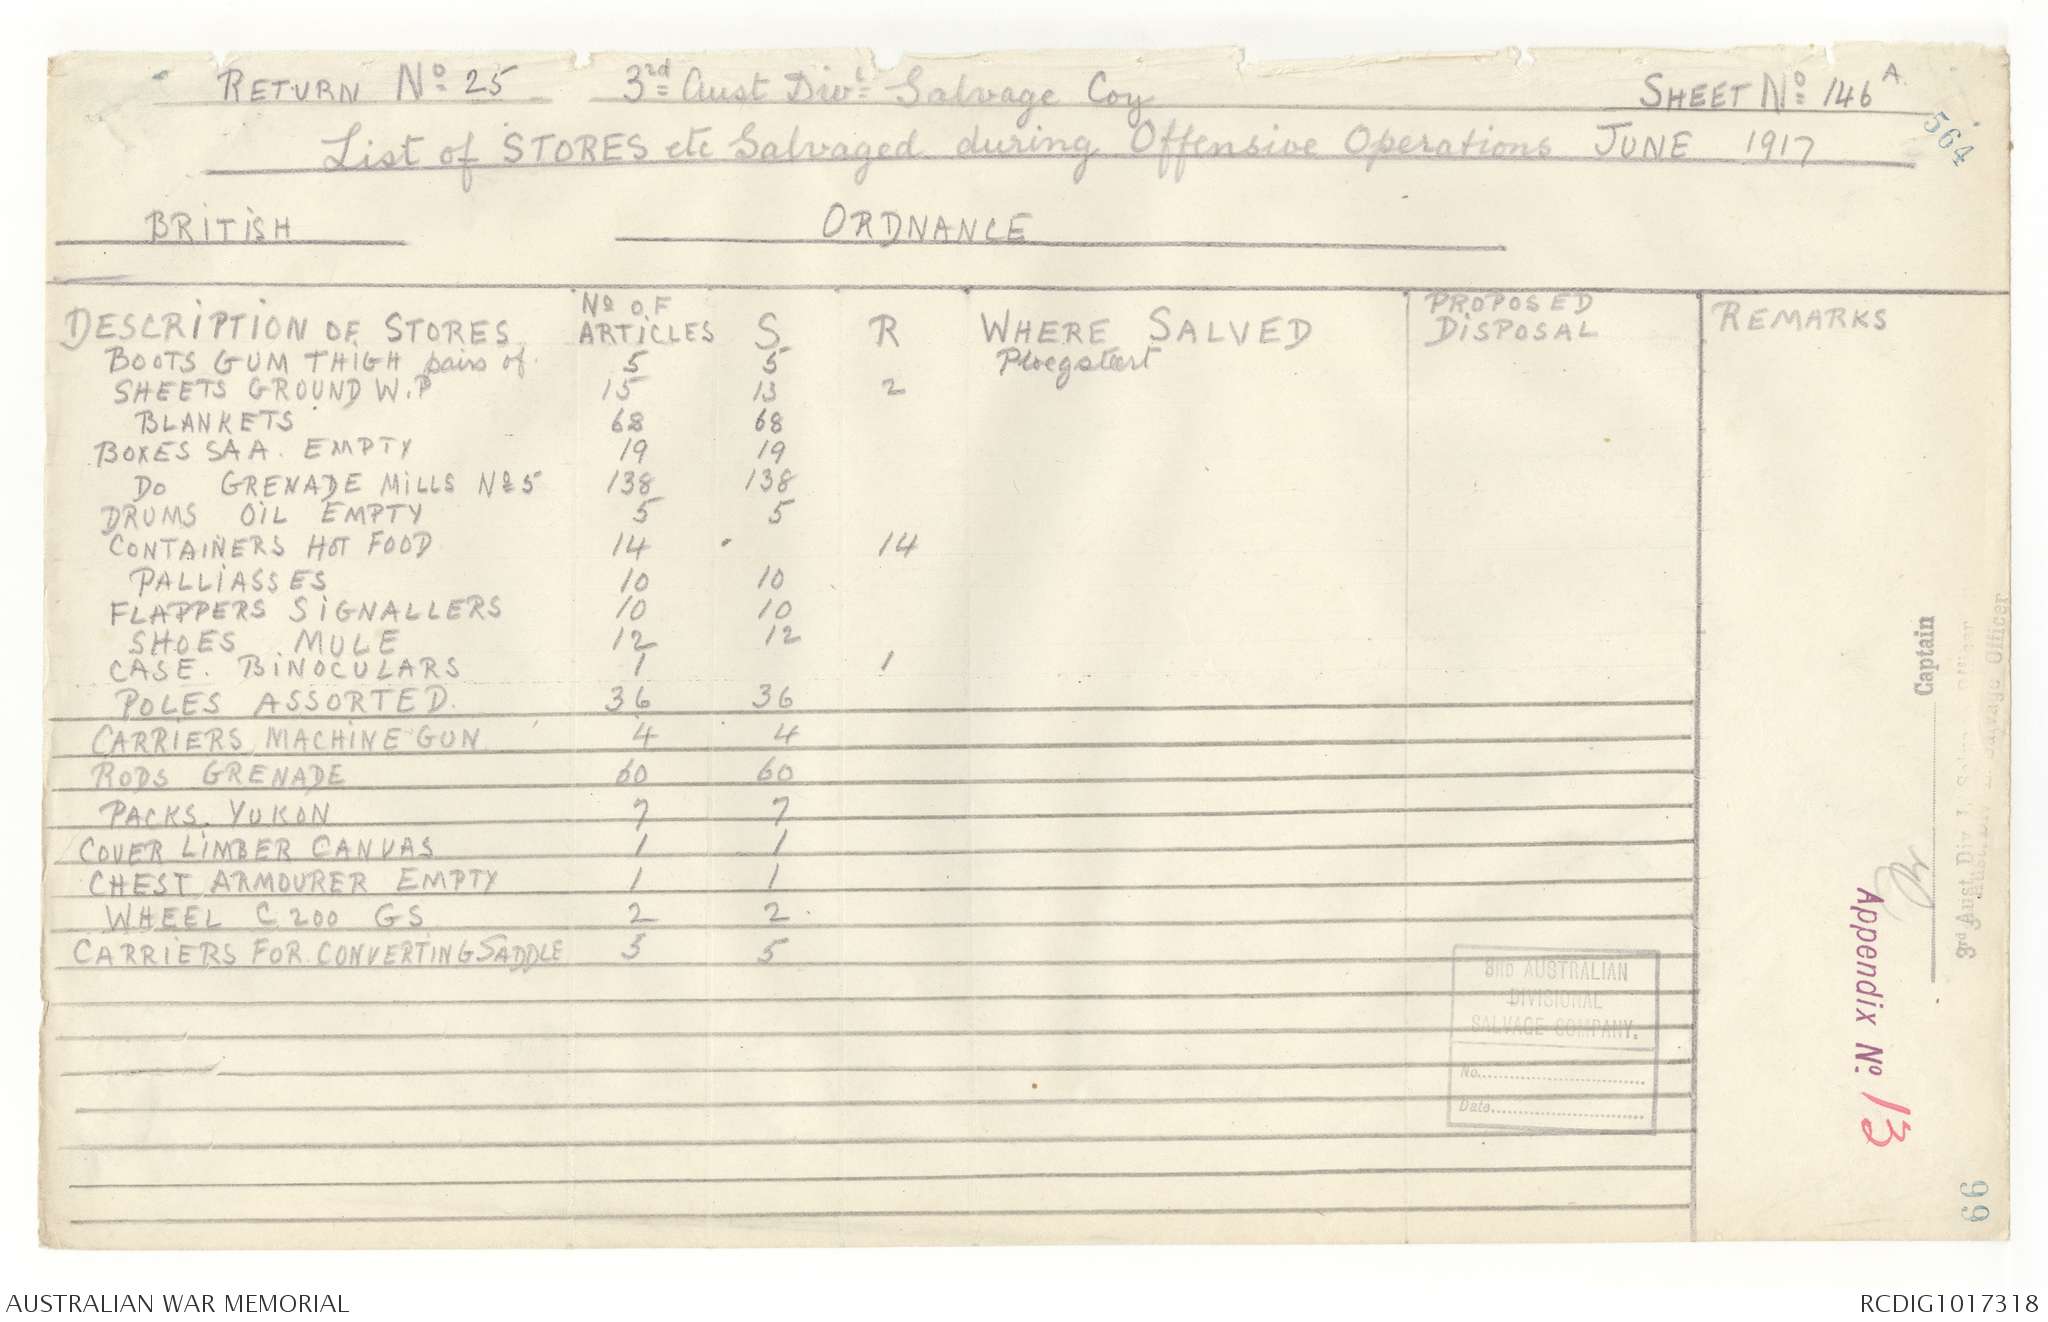 RETURN No 25 3rd Aust Divl Salvage Coy SHEET No 146A
564
List of STORES etc Salvaged during Offensive Operations JUNE 1917
BRITISH ORDNANCE
DESCRIPTION OF STORES No OF ARTICLES S R WHERE SALVED PROPOSED DISPOSAL REMARKS
BOOTS GUM THIGH pairs of 5 5 Ploegsteert
SHEETS GROUND W.P 15 13 2
BLANKETS 68 68
BOXES SAA. EMPTY 19 19
DO GRENADE MILLS No 5 138 138
DRUMS OIL EMPTY 5 5
CONTAINERS HOT FOOD 14 14
PALLIASSES 10 10
FLAPPERS SIGNALLERS 10 10
SHOES MULE 12 12
CASE. BINOCULARS 1 1
POLES ASSORTED. 36 36
CARRIERS MACHINE GUN 4 4
RODS GRENADE 60 60
PACKS. YUKON 7 7
COVER LIMBER CANVAS 1 1
CHEST ARMOURER EMPTY 1 1
WHEEL C 200 GS 2 2
CARRIERS FOR CONVERTING SADDLE 5 5
3RD AUSTRALIAN
DIVISIONAL
SALVAGE COMPANY.
No.
Date
Captain
3rd Aust. Div. Salvage Officer
Appendix No. 13
66
AUSTRALIAN WAR MEMORIAL RCDIG1017318